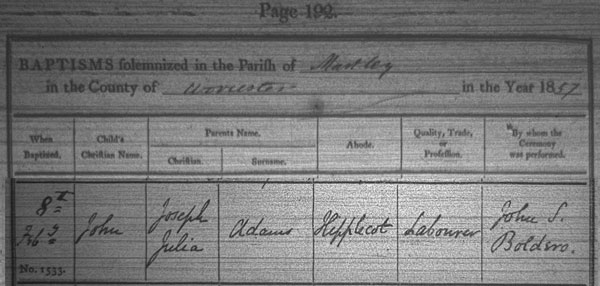 Page 192.
BAPTISMS solemnized in the Parish of Martley
in the County of Worcester in the Year 1857
When Baptized.
Child's Christian Name.
Parents Name.
Christian.
Surname.
Abode.
Quality, Trade, or Profession.
By whom the Ceremony was performed.
8th
Feby
No. 1533.
John
Joseph
Julia
Adams
Hipplecot
Labourer
John S.
Boldero.